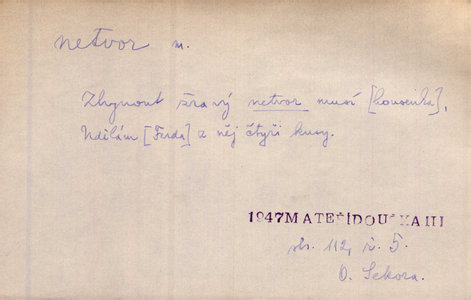 netvor m.
Zhynout žravý netvor musí [housenka],
Udělám [Ferda] z něj čtyři kusy.
1947 MATEŘÍDOUŠKA III
str. 112, č. 5.
O. Sekora.